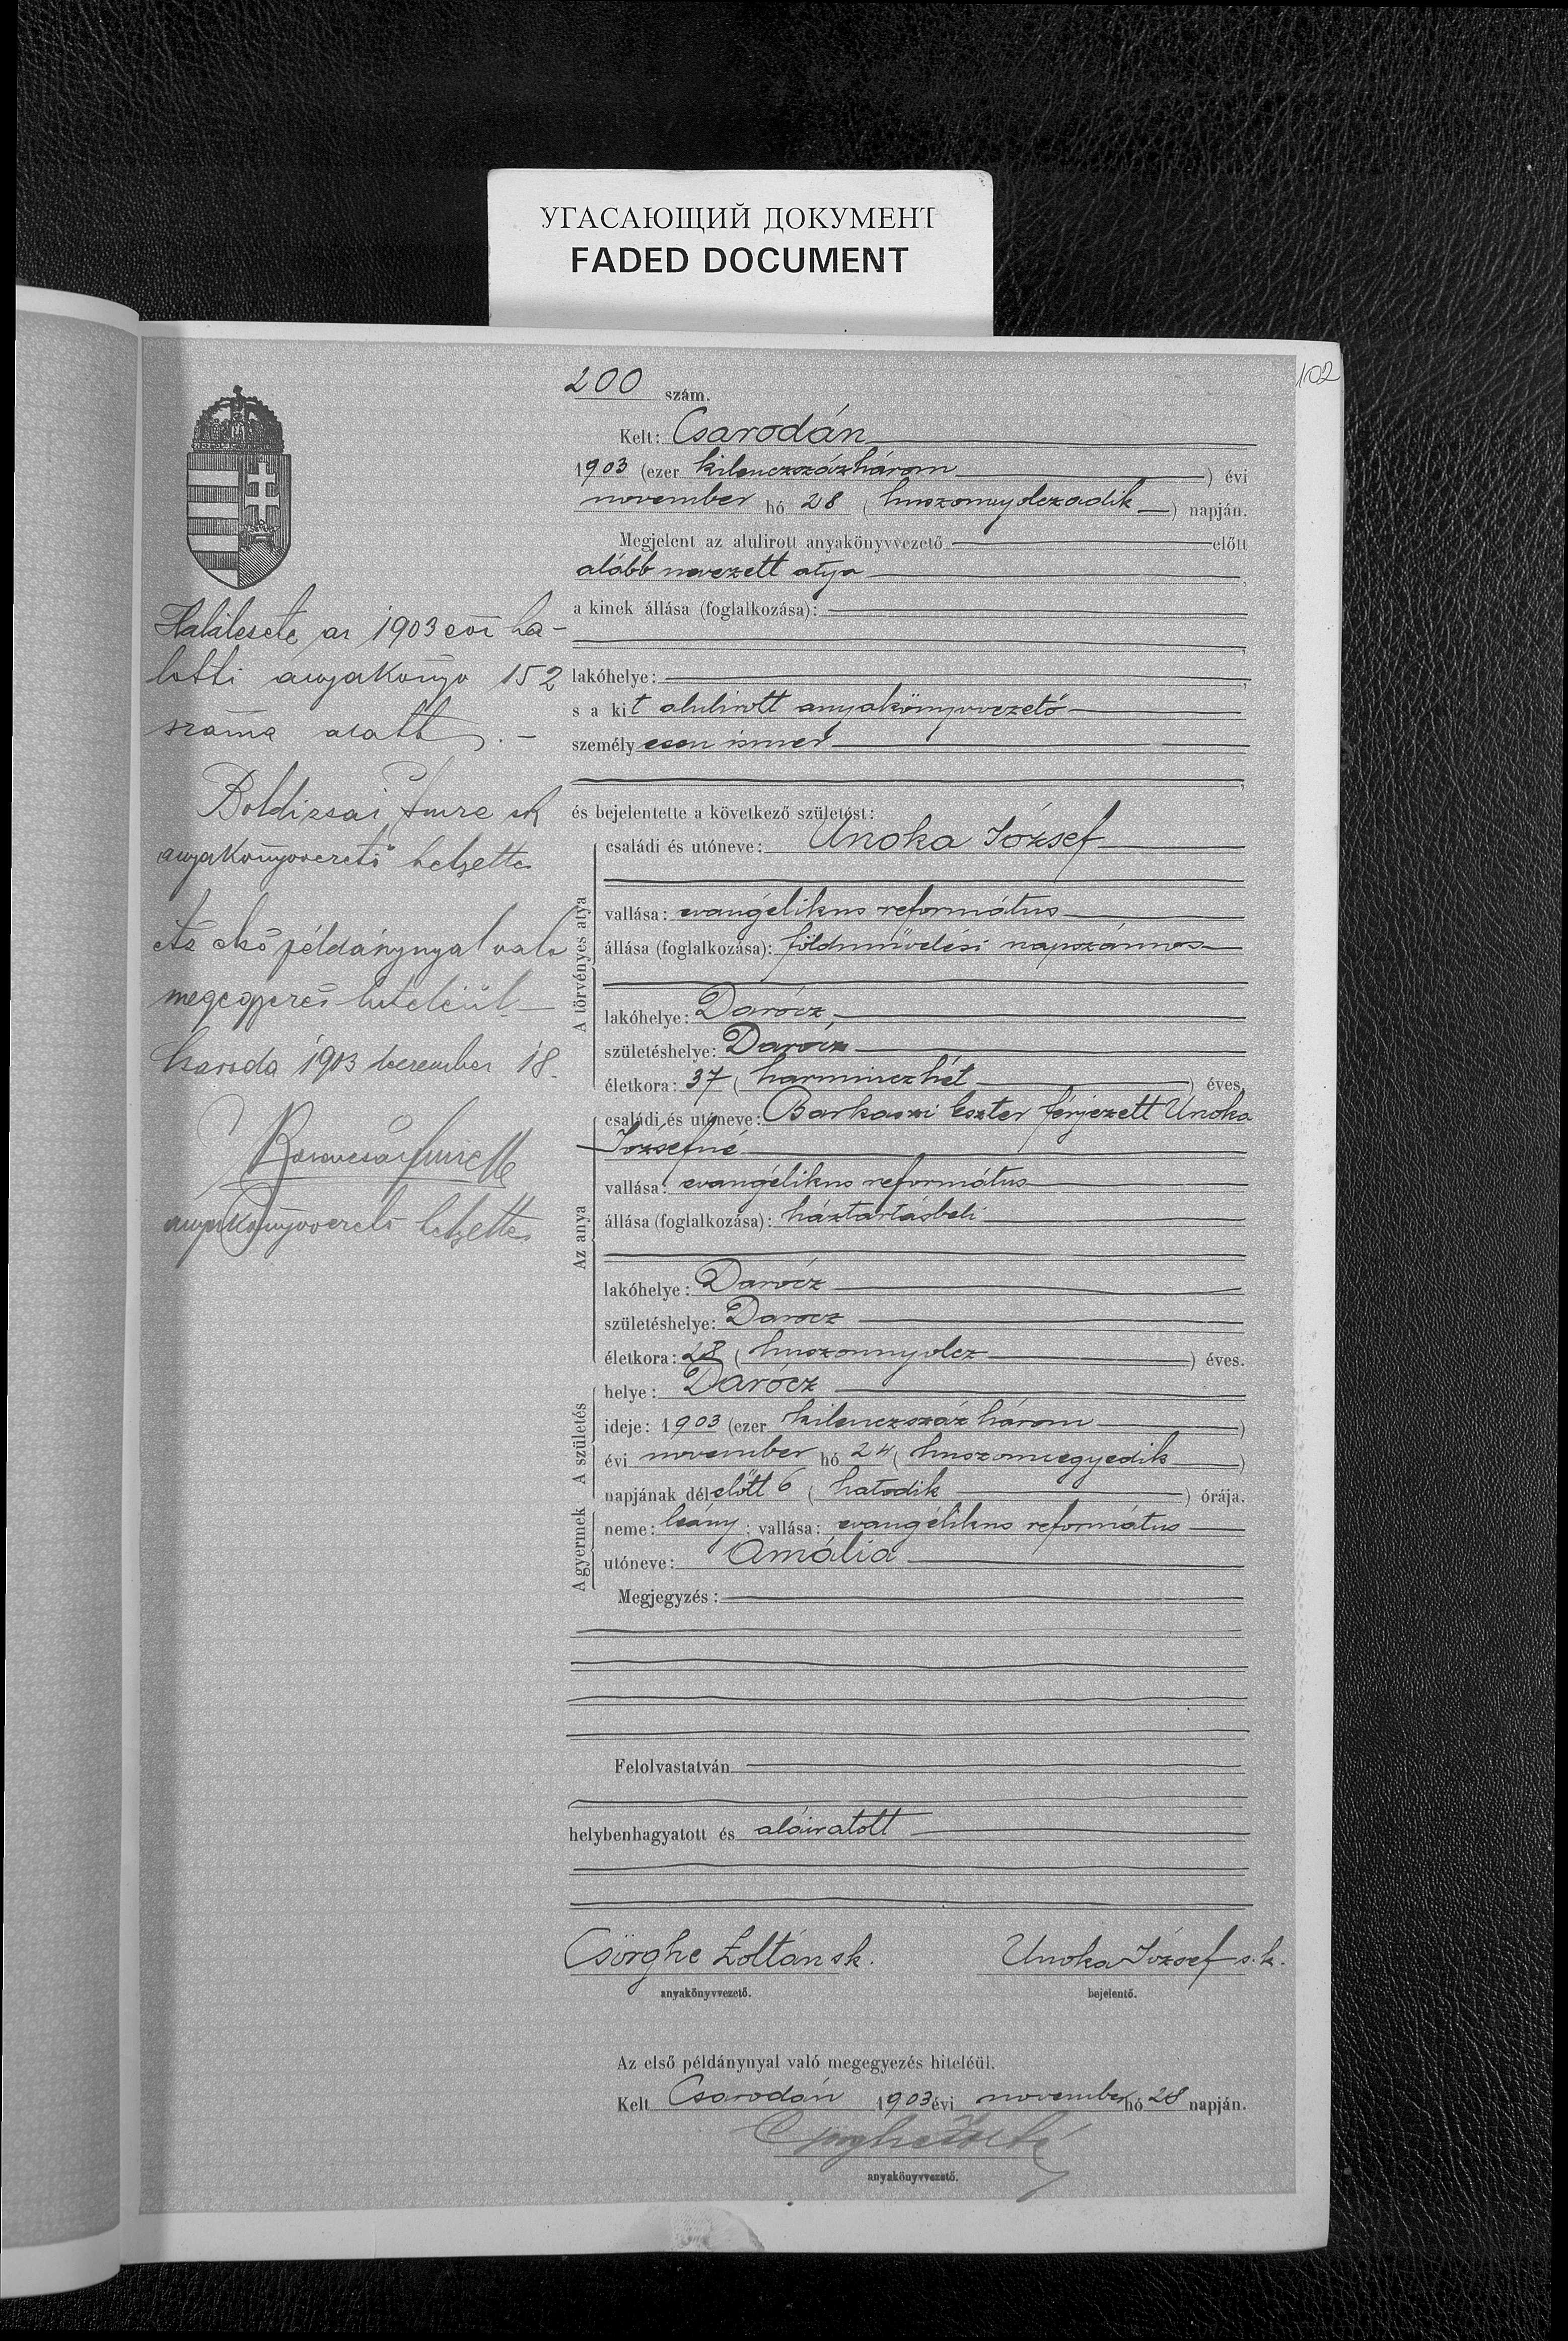 УГАСАЮЩИЙ ДОКУМЕНТ
FADED DOCUMENT
102
200 szám.
Kelt: Csarodán
1903 (ezer kilenczszázhárom) évi
november hó 28 (huszonnyolczadik) napján.
Megjelent az alulirott anyakönyvvezető előtt
alább nevezett atya,
a kinek állása (foglalkozása):
lakóhelye:
s a kit alulirott anyakönyvvezető
személyesen ismer
és bejelentette a következő születést:
A törvényes atya
családi és utóneve: Unoka József
vallása: evangélikus református
állása (foglalkozása): földmüvelési napszámos
lakóhelye: Darócz
születéshelye: Darócz
életkora: 37 (harminczhét) éves.
Az anya
családi és utóneve: Barkaszi Eszter férjezett Unoka
Józsefné
vallása: evangélikus református
állása (foglalkozása): háztartásbeli
lakóhelye: Darócz
születéshelye: Darocz
életkora: 28 (huszonnyolcz) éves.
A születés
helye: Darócz
ideje: 1903 (ezer kilenczszáz három)
évi november hó 24 (huszonnegyedik)
napjának délelőtt 6 (hatodik) órája.
A gyermek
neme: leány; vallása: evangélikus református
utóneve: Amália
Megjegyzés:
Felolvastatván
helybenhagyatott és aláiratott
Csörghe Zoltán sk.
anyakönyvvezető.
Unoka József s.k.
bejelentő.
Az első példánynyal való megegyezés hiteléül.
Kelt Csarodán 1903 évi november hó 28 napján.
anyakönyvvezető.
Halálesete az 1903 évi ha-
lotti anyakönyv 152
száma alatt. -
Boldizsár Imre sk
anyakönyvvezető helyettes
Az első példánynyal való
megegyezés hiteléül
Csaroda 1903 december 18.
anyakönyvvezető helyettes